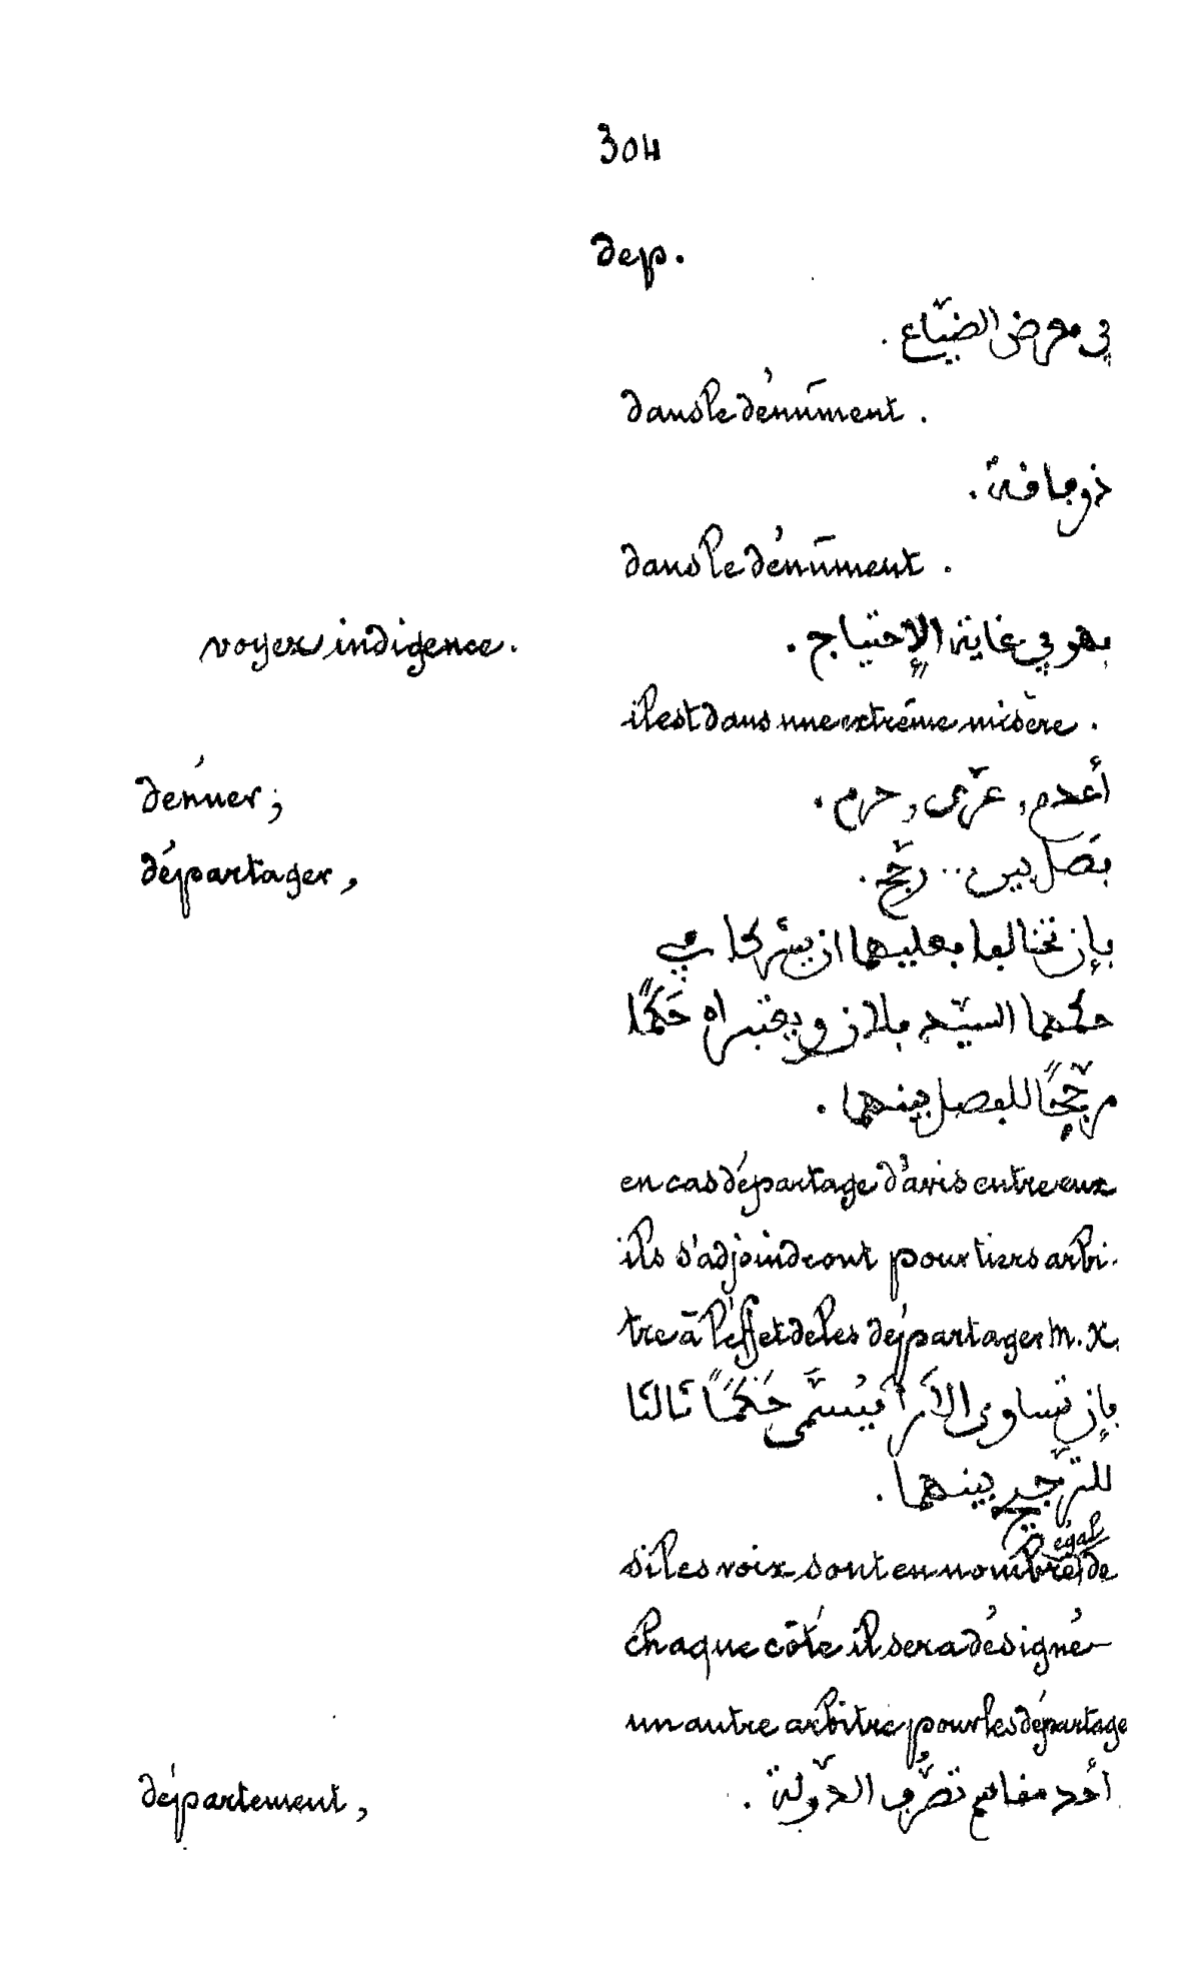 304
dep.
في معرض الضيّاع.
dans le dénûment.
ذو فافة.
dans le dénûment.
voyez indigence.
فهو في غاية الإحتياج.
il est dans une extrême misère.
dénuer;
أعدم, عرّى, حرم.
départager,
فصل بين .. رجّح.
فإن تخالفا فعليهما ان يشركا في
حكمهما السيّد فلان ويعتبراه حَكَمًا
مرجّحًا للفصل بينهما.
en cas départage d'avis entre eux
ils s'adjoindront pour tiers arbi-
tre à l'effet de les départager M. X.
فإن تساوى الأَرَا فيُسمَّى حَكَمًا ثَالثَا
للترّجيح بينهما.
si les voix sont en nombre égal de
chaque côté il sera désigné
un autre arbitre pour les départage
département,
أحد مقاسم تصرُّف الدّولة.